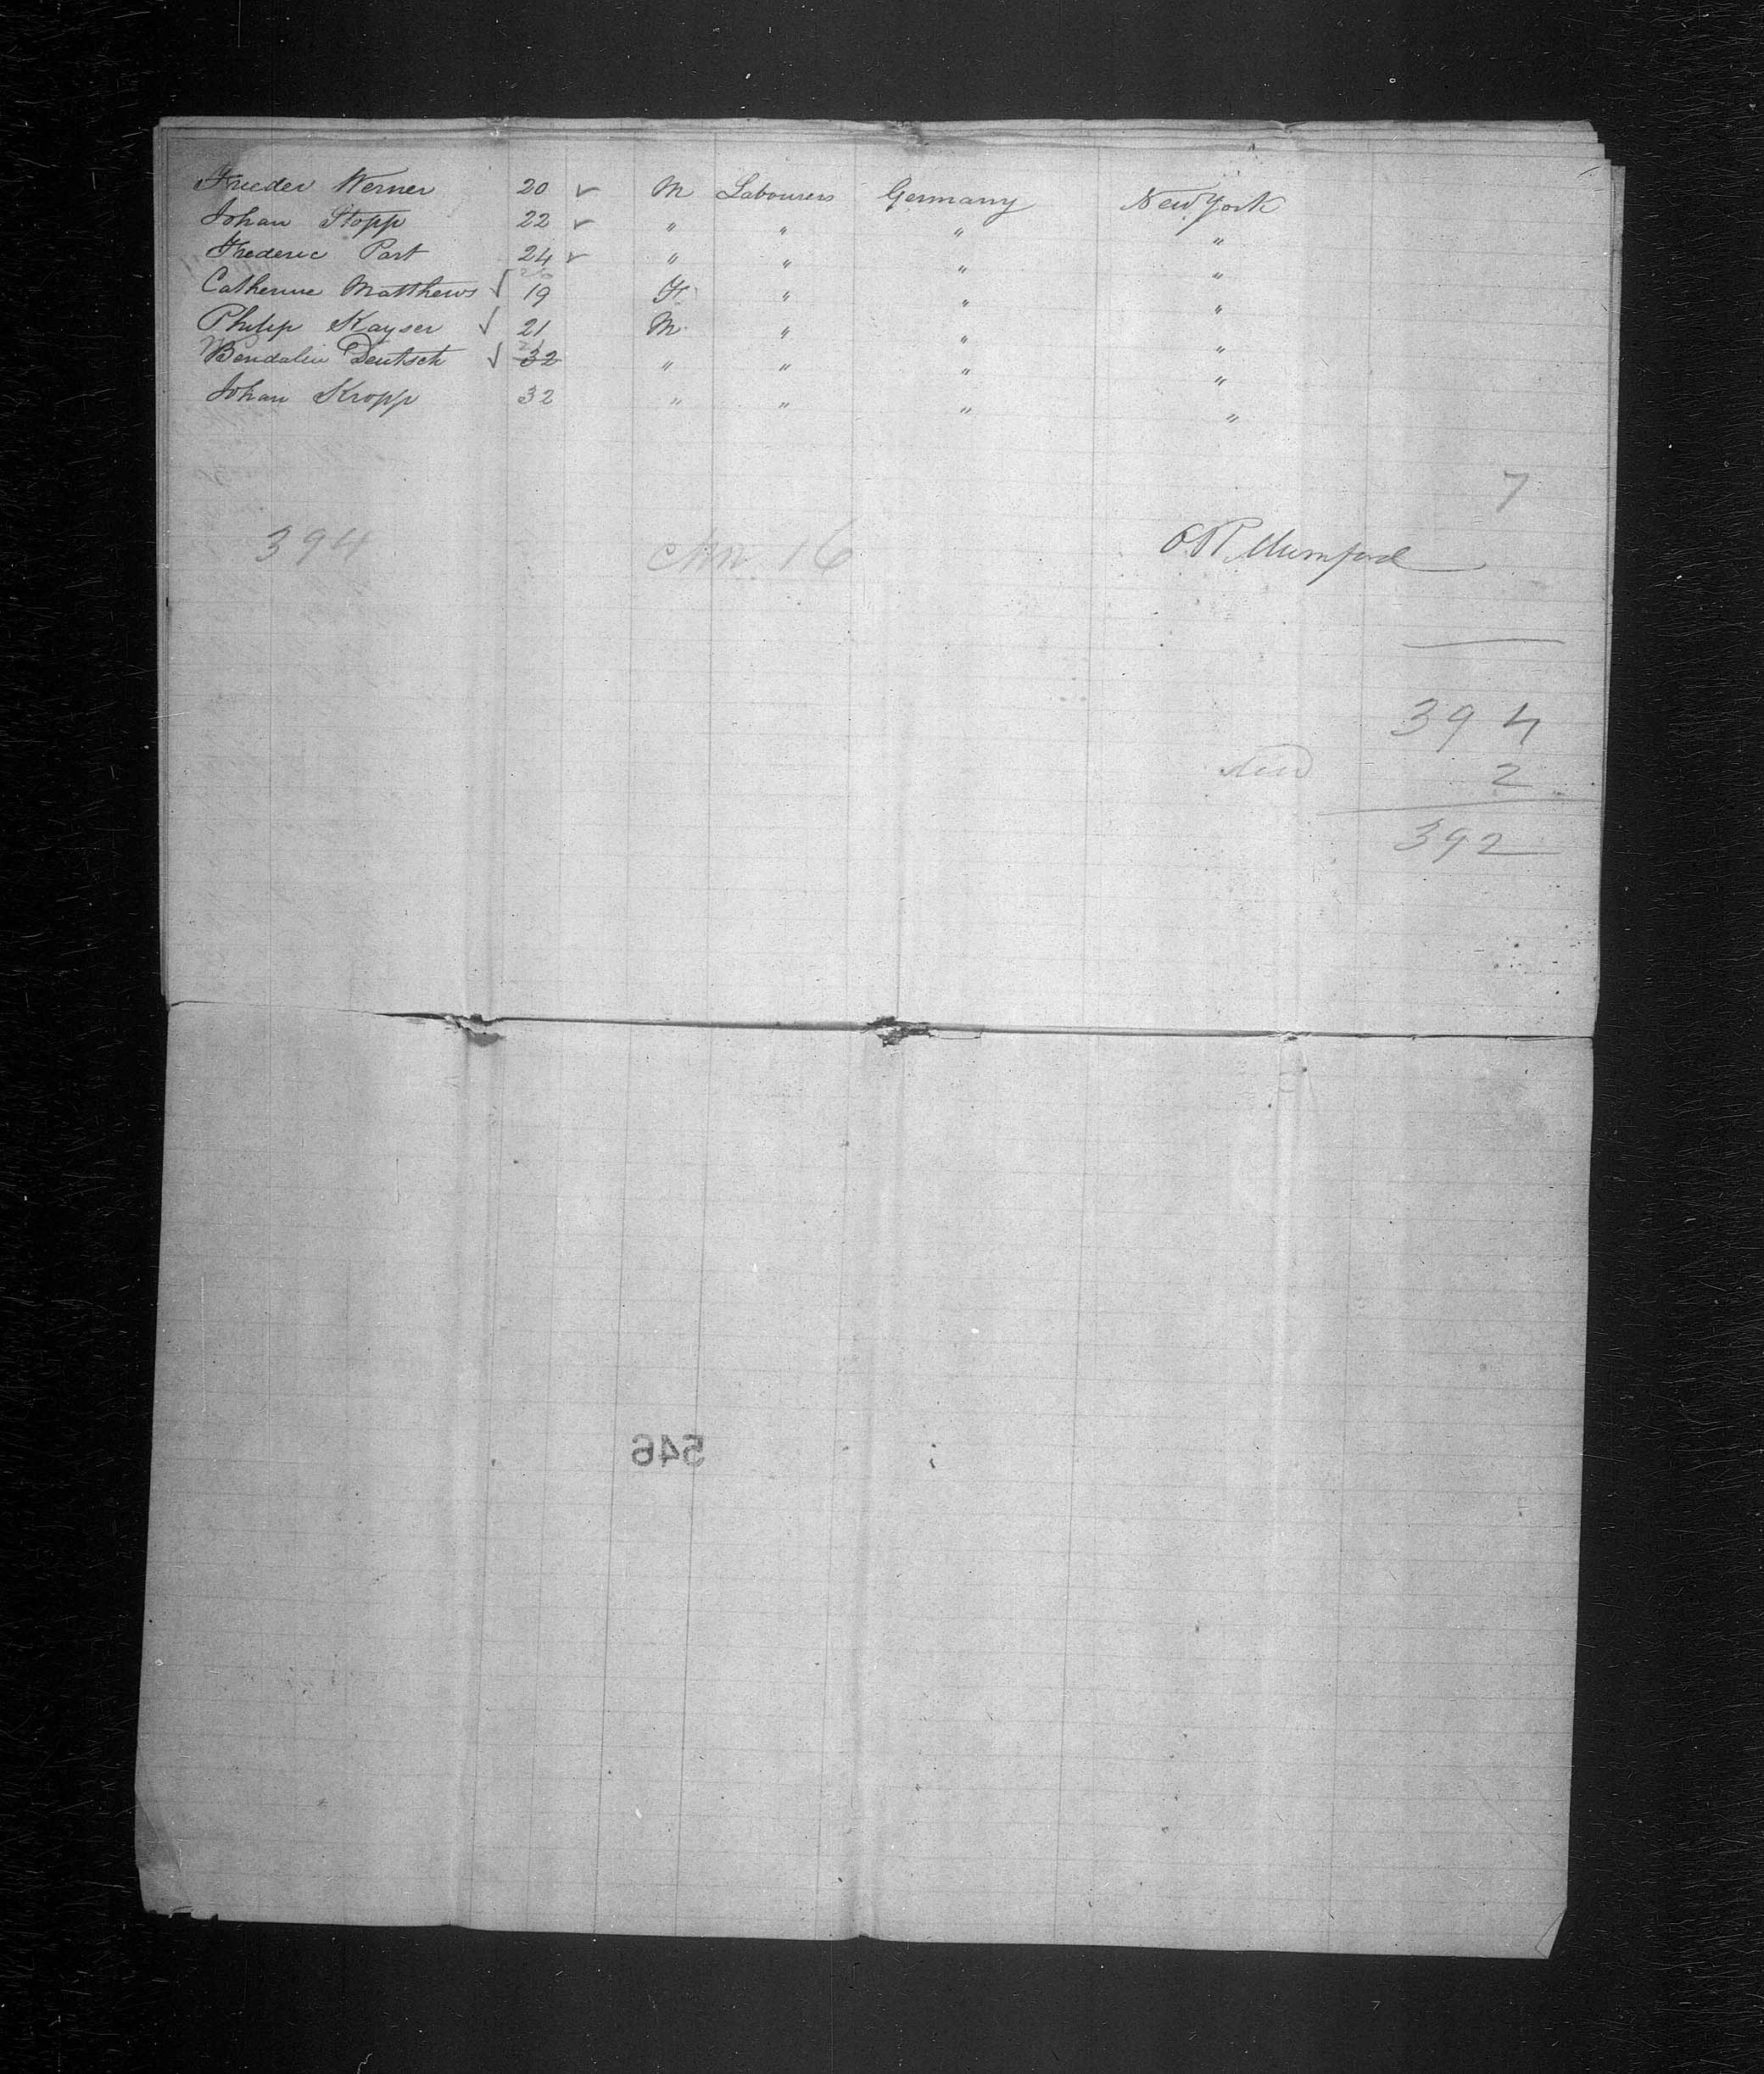 Frieder Werner 20 ✓ M Labourers Germany New York
Johan Stopp 22 ✓ " " " "
Frederic Part 24 ✓ " " " "
Catherine Matthews ✓ 19 F " " "
Philip Kayser ✓ 21 M " " "
Bendalin Deutsch ✓ 32 " " " "
Johan Kropp 32 " " " "
7
394 16 Mumford
394
2
392
546